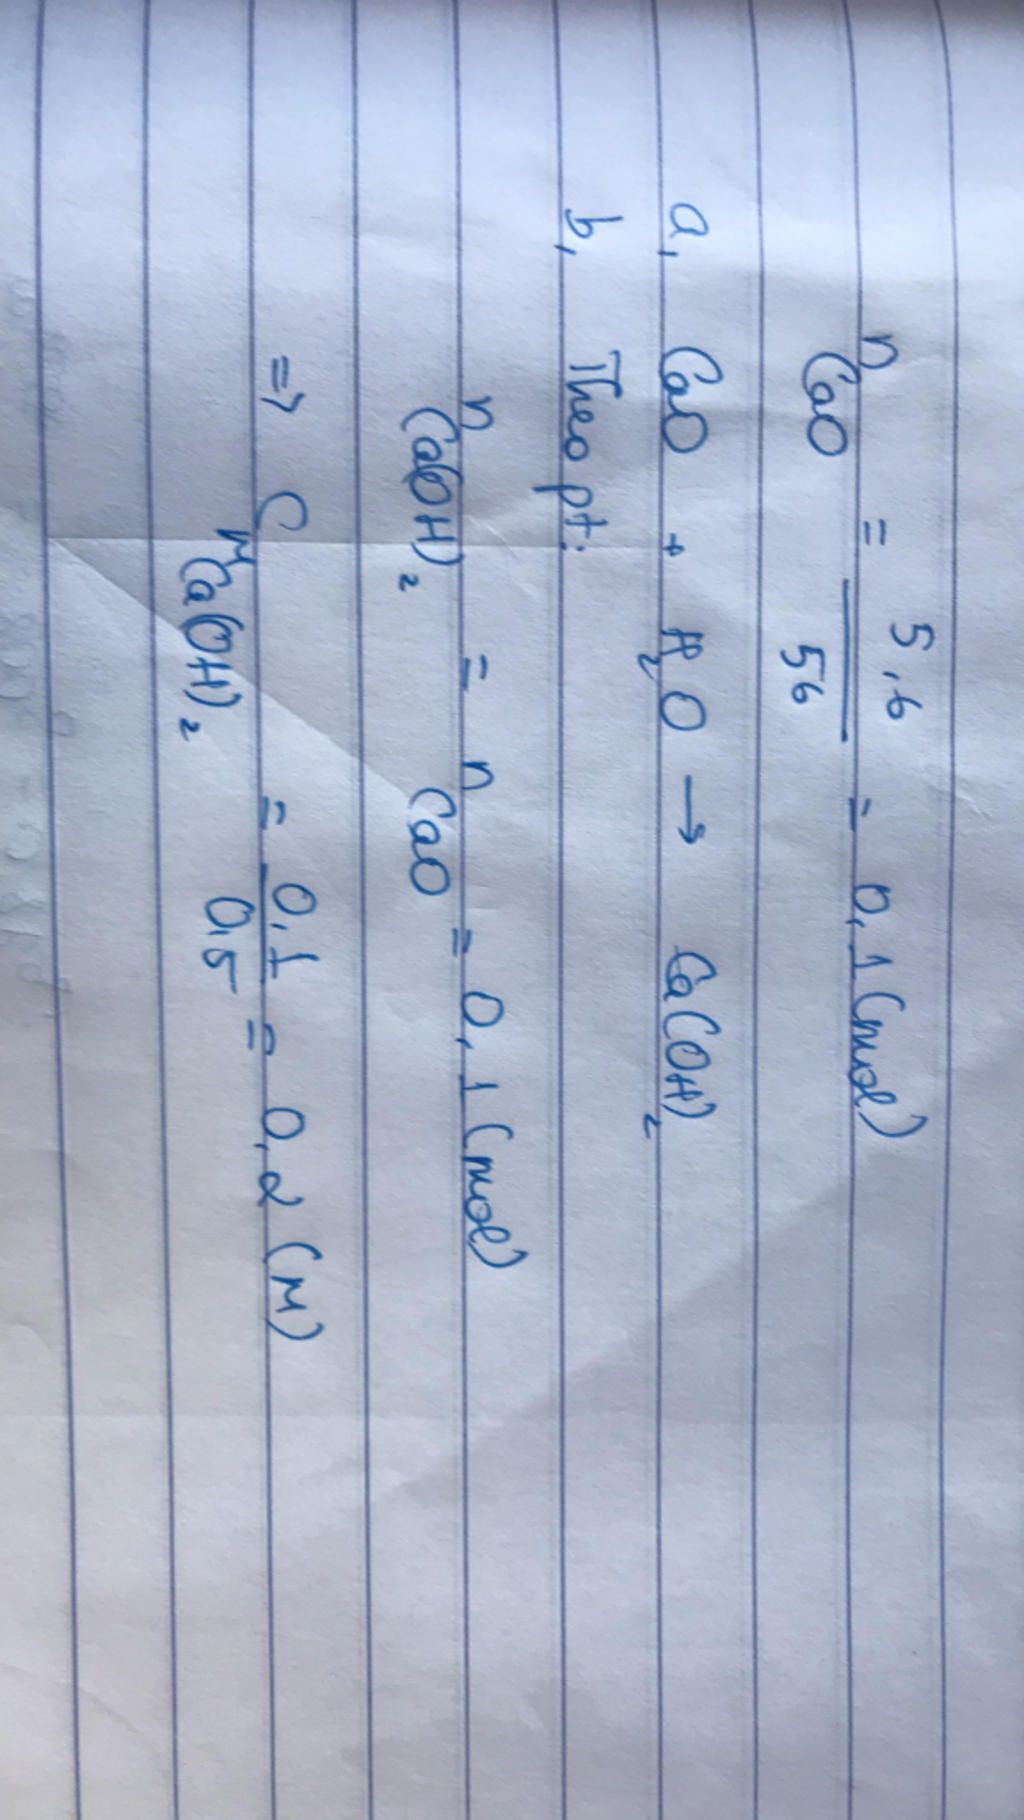 nCaO = 5,6 / 56 = 0,1 (mol)
a, CaO + H₂O → Ca(OH)₂
b, Theo pt:
nCa(OH)₂ = nCaO = 0,1 (mol)
=> CM Ca(OH)₂ = 0,1 / 0,5 = 0,2 (M)